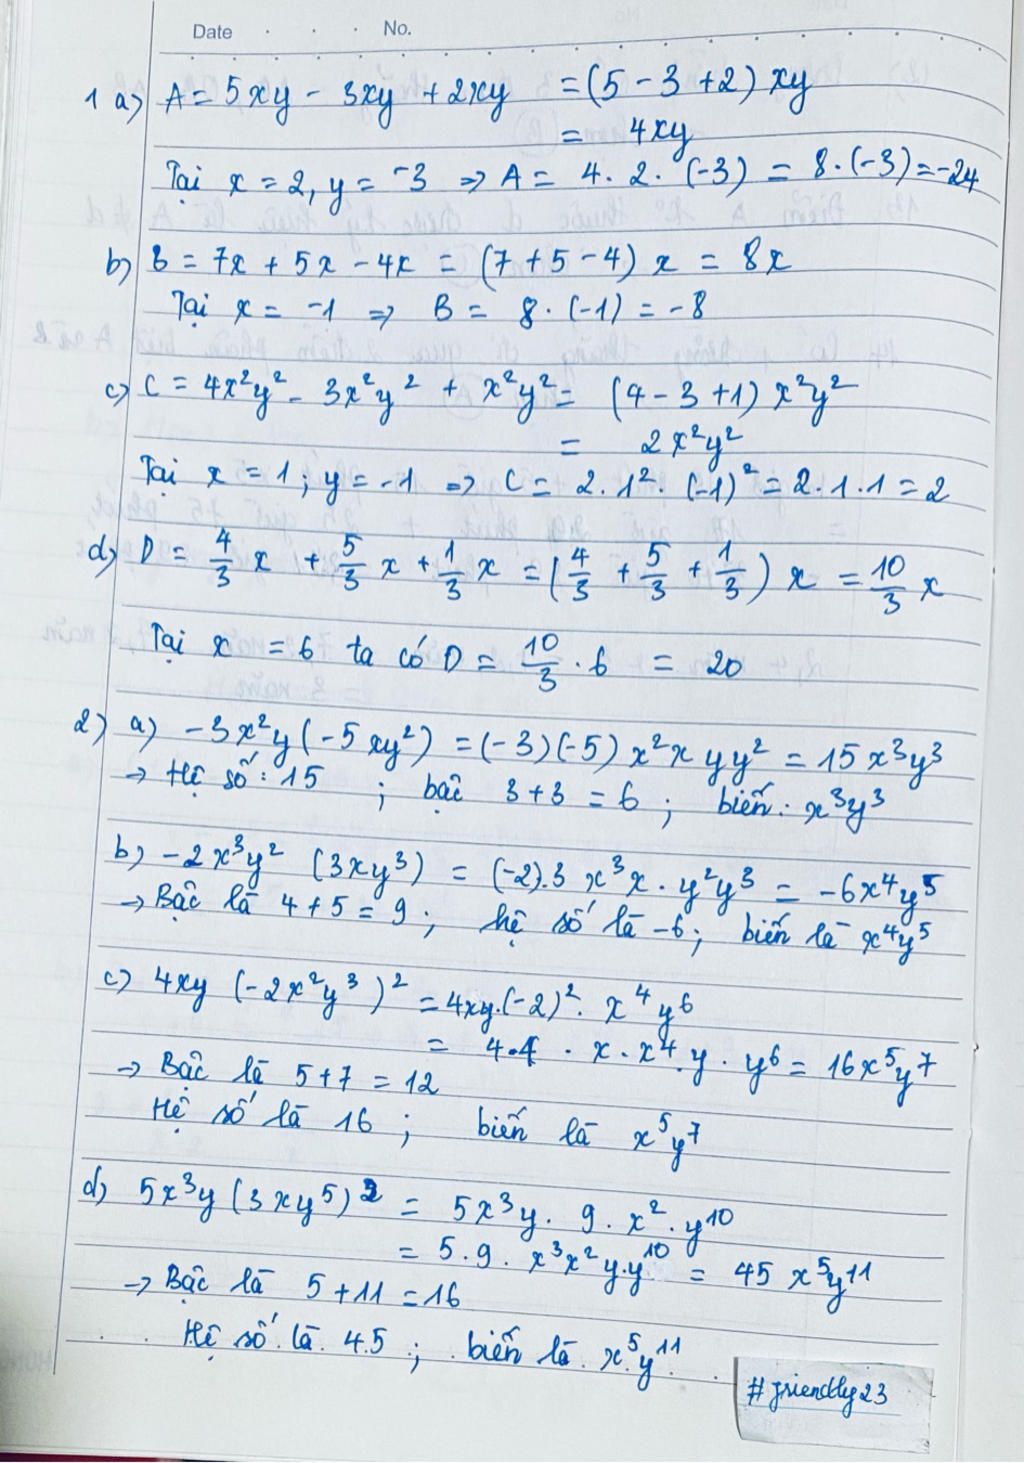 Date . . . No.
1 a) A = 5xy - 3xy + 2xy = (5 - 3 + 2) xy
= 4xy
Tại x = 2, y = -3 => A = 4 . 2 . (-3) = 8 . (-3) = -24
b) B = 7x + 5x - 4x = (7 + 5 - 4) x = 8x
Tại x = -1 => B = 8 . (-1) = -8
c) C = 4x²y² - 3x²y² + x²y² = (4 - 3 + 1) x²y²
= 2x²y²
Tại x = 1 ; y = -1 => C = 2 . 1² . (-1)² = 2 . 1 . 1 = 2
d) D = 4/3 x + 5/3 x + 1/3 x = (4/3 + 5/3 + 1/3) x = 10/3 x
Tại x = 6 ta có D = 10/3 . 6 = 20
2) a) -3x²y (-5xy²) = (-3)(-5) x²x yy² = 15x³y³
→ Hệ số : 15 ; bậc 3 + 3 = 6 ; biến . x³y³
b) -2x³y² (3xy³) = (-2).3 x³x . y²y³ = -6x⁴y⁵
→ Bậc là 4 + 5 = 9 ; hệ số là -6 ; biến là x⁴y⁵
c) 4xy (-2x²y³)² = 4xy.(-2)² . x⁴y⁶
= 4.4 . x . x⁴ . y . y⁶ = 16x⁵y⁷
→ Bậc là 5 + 7 = 12
Hệ số là 16 ; biến là x⁵y⁷
d) 5x³y (3xy⁵)² = 5x³y . 9 . x² . y¹⁰
= 5 . 9 . x³x² y.y¹⁰ = 45 x⁵y¹¹
→ Bậc là 5 + 11 = 16
Hệ số là 45 ; biến là x⁵y¹¹
#friendly23